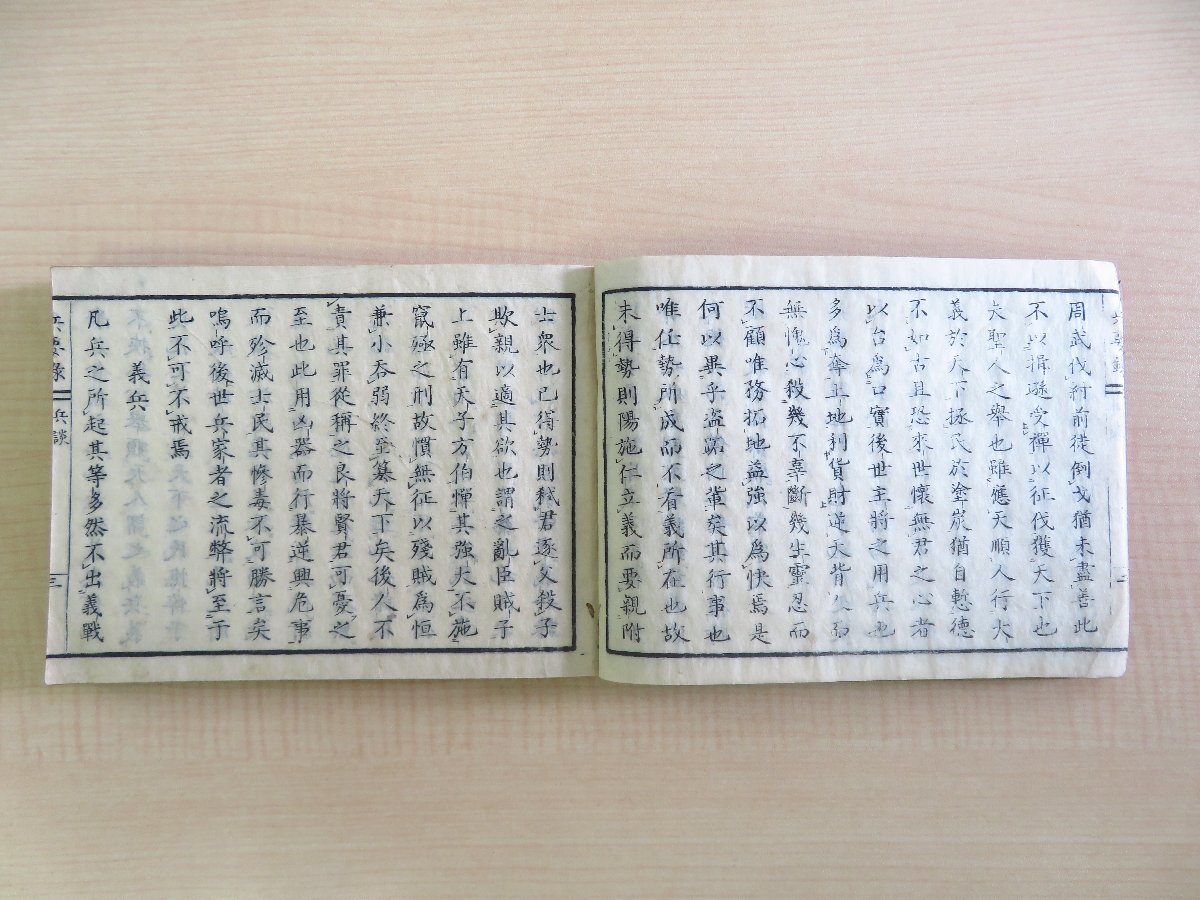 周武伐紂前徒倒戈猶未盡善此
不以揖遜受禪以征伐獲天下也
夫聖人之舉也雖應天順人行大
義於天下拯民於塗炭猶自慙德
不如古且恐來世懷無君之心者
以台為口實後世主將之用兵也
多為奪土地利貨財逆天背人而
無愧心殺幾不辜斷幾生靈忍而
不顧唯務拓地益強以為快焉是
何以異乎盜跖之輩矣其行事也
唯任勢所成而不看義所在也故
未得勢則陽施仁立義而要親附
士衆也已得勢則弒君逐父殺子
欺親以適其欲也謂之亂臣賊子
上雖有天子方伯憚其強大不施
竄殛之刑故慣無征以殘賊為恒
兼小吞弱終至簒天下矣後人不
責其罪從稱之良將賢君可憂之
至也此用凶器而行暴逆興危事
而殄滅士民其慘毒不可勝言矣
嗚呼後世兵家者之流弊將至于
此不可不戒焉
義兵
凡兵之所起其等多然不出義戰
兵要錄 兵談 三